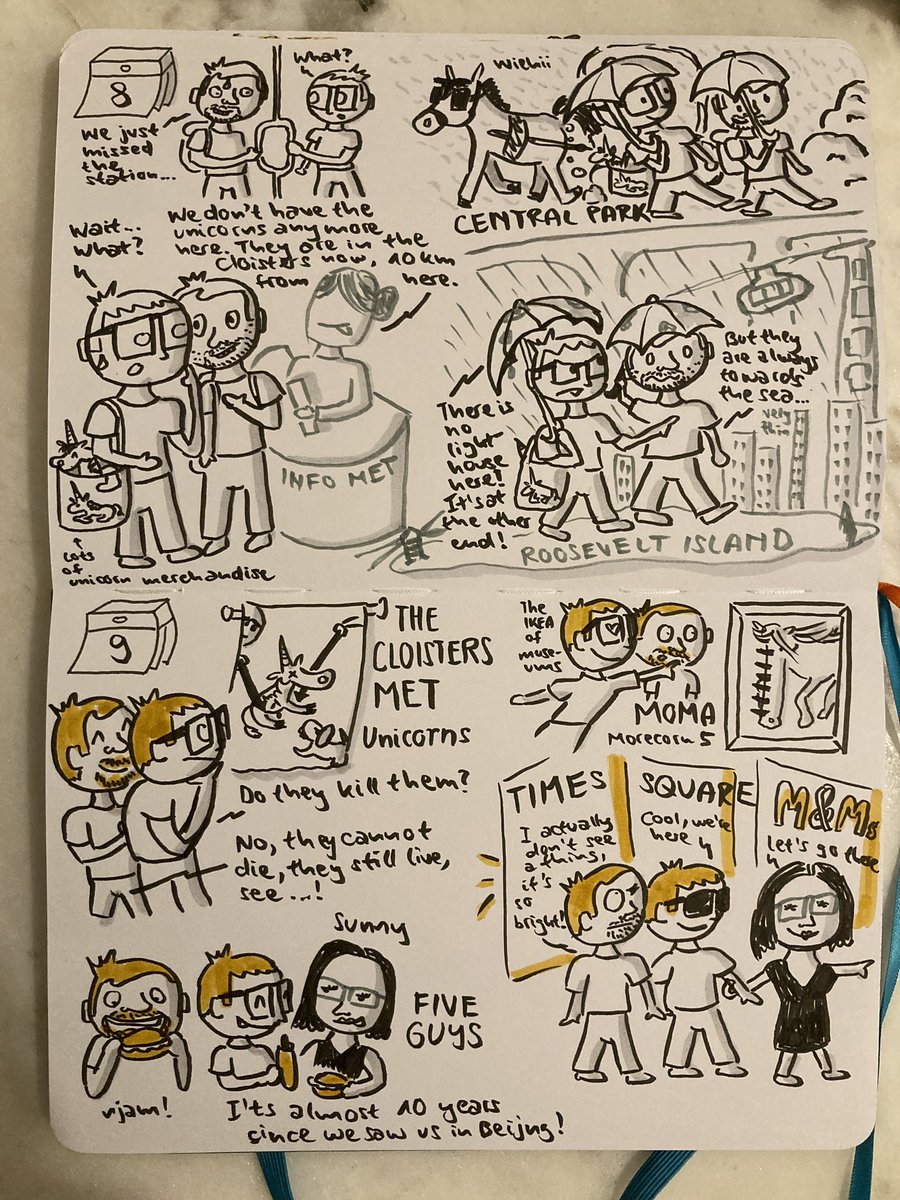 8
We just
missed
the
station...
What?
Wiehii
CENTRAL PARK
Wait...
What?
We don't have the
unicorns any more
here. They are in the
Cloisters now, 10 km
from here.
INFO MET
Lots
of
unicorn merchandise
There is
no
light
house
here!
It's at
the other
end!
But they
are always
towards
the sea...
very
thin
ROOSEVELT ISLAND
9
THE
CLOISTERS
MET
Unicorns
Do they kill them?
No, they cannot
die, they still live,
see...!
The
IKEA
of
muse-
ums
MOMA
Morecorn 5
TIMES
SQUARE
M&Ms
I actually
don't see
a thing,
it's
so
bright!
Cool, we're
here
Let's go there
Sunny
FIVE
GUYS
njam!
I'ts almost 10 years
since we saw us in Beijng!